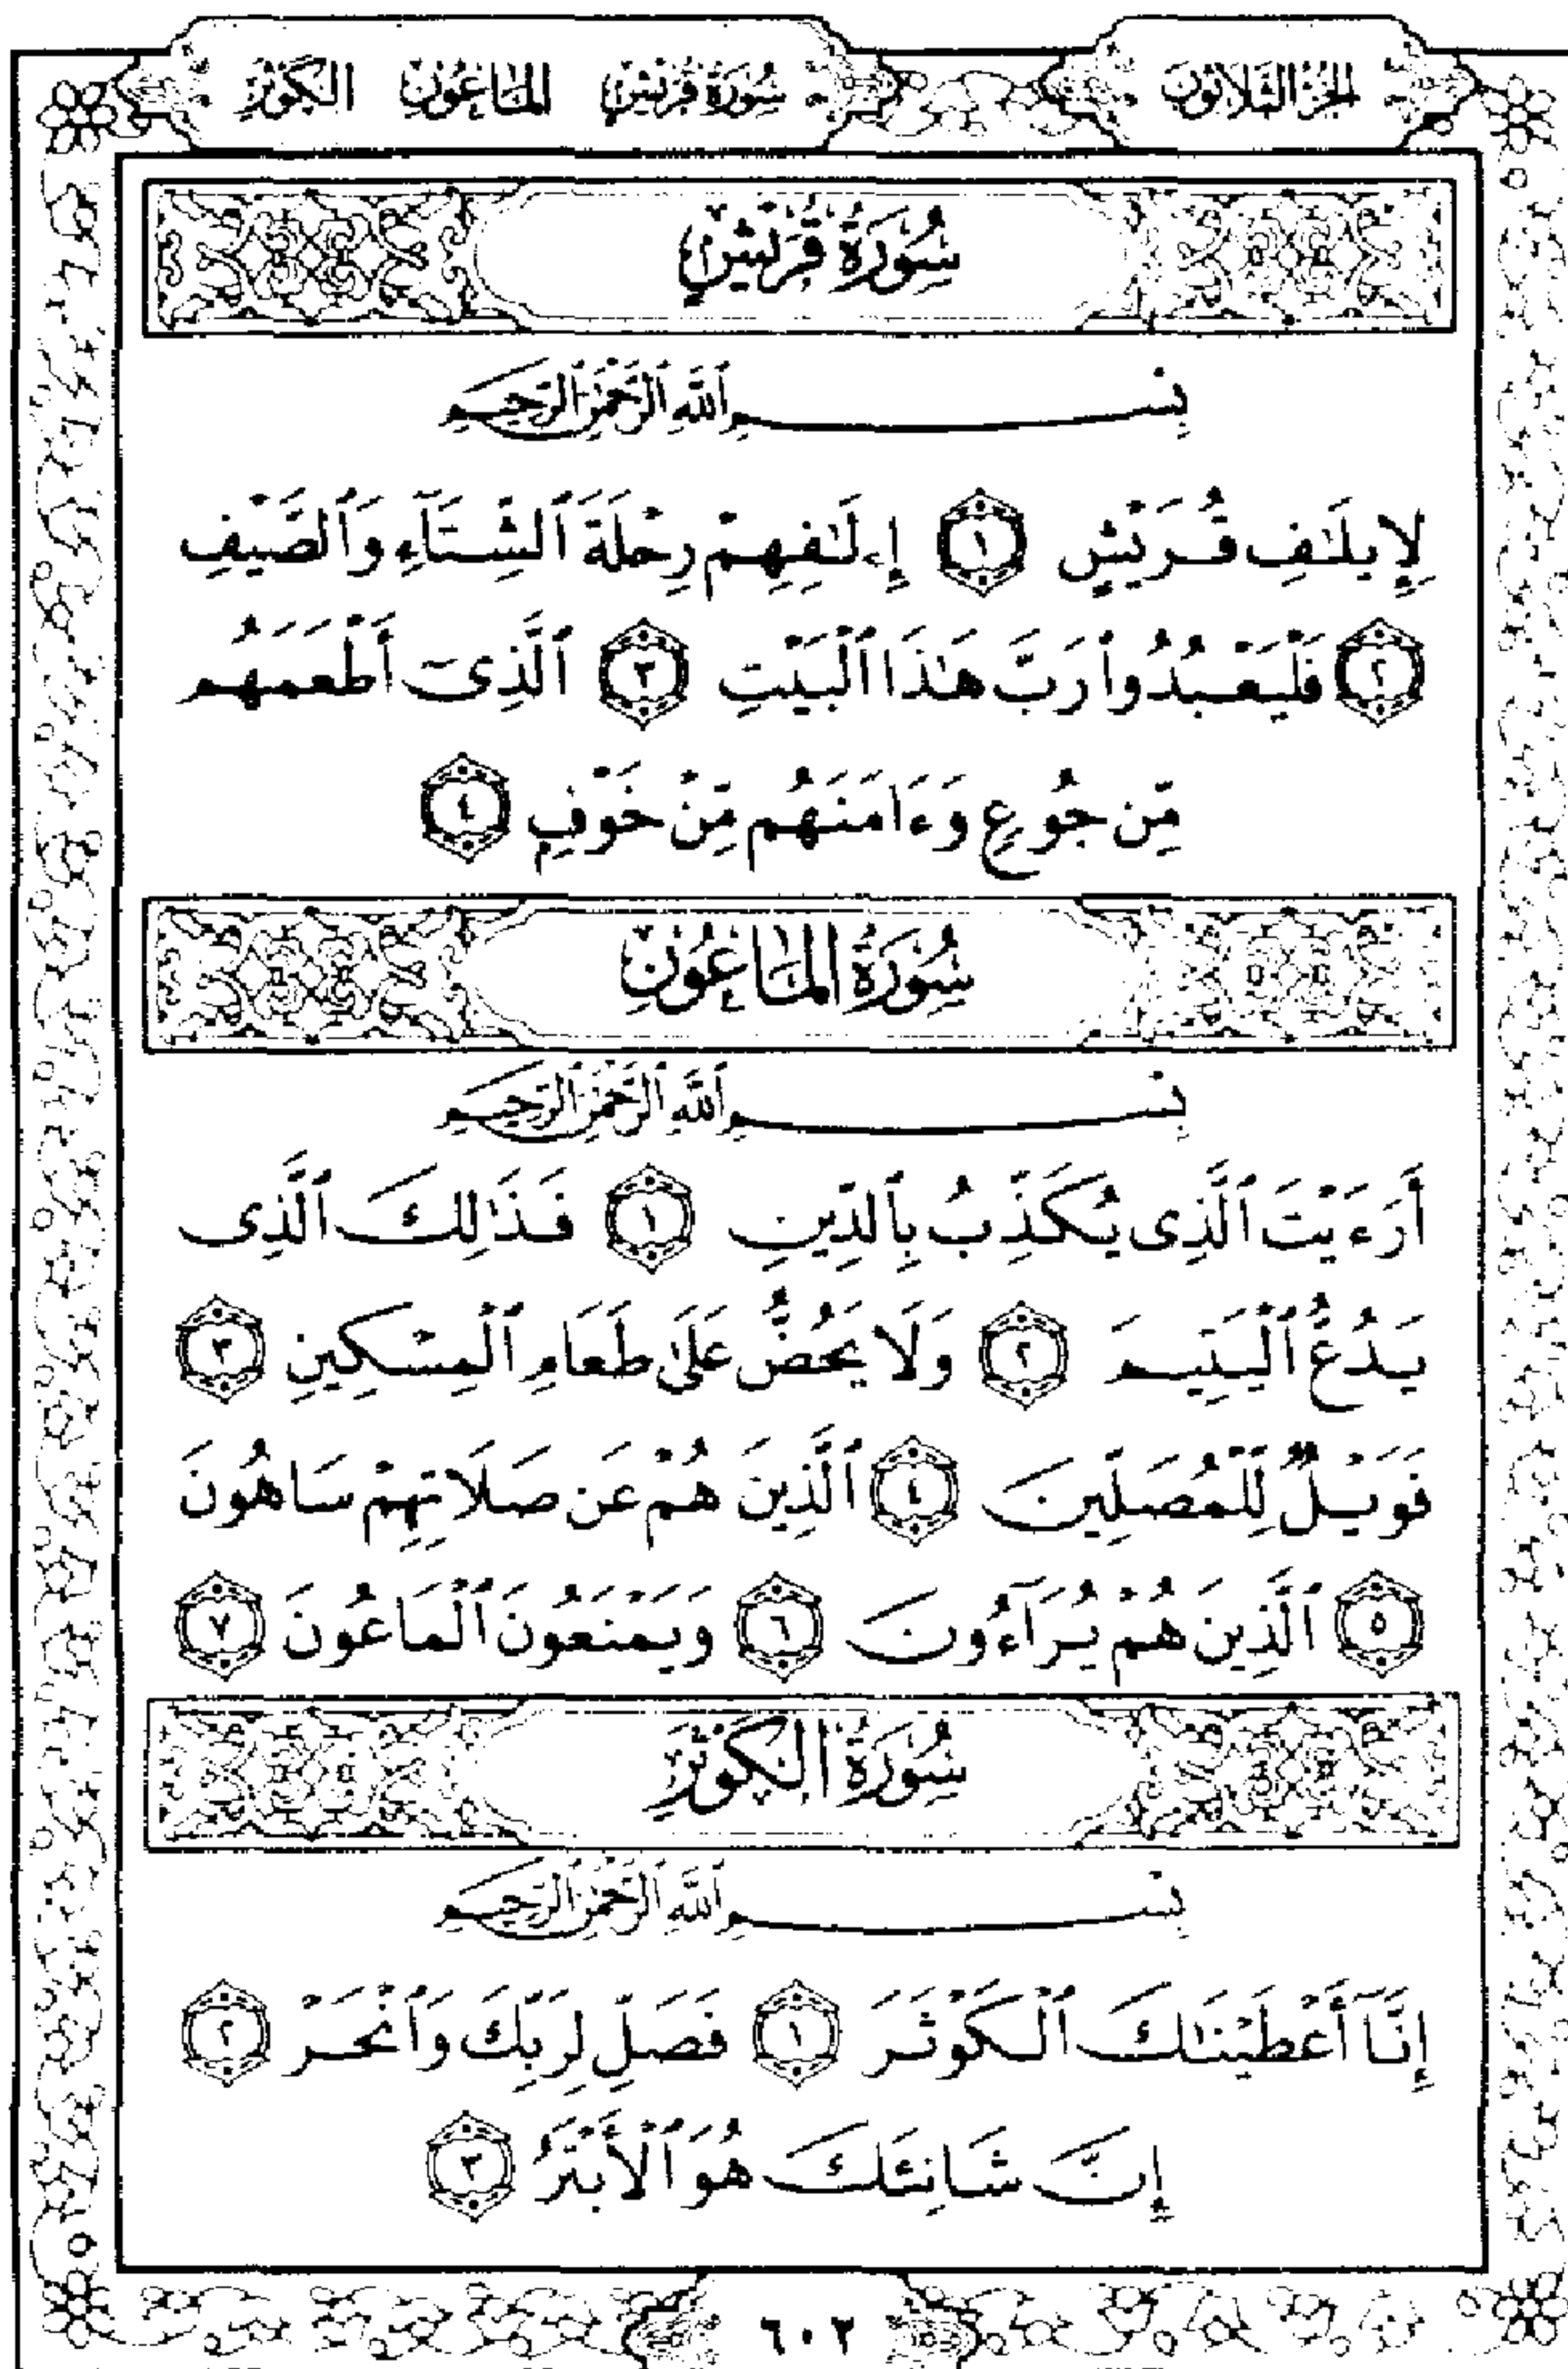 الجزء الثلاثون
سورة قريش الماعون الكوثر
سُورَةُ قُرَيْشٍ
بِسْمِ ٱللَّهِ ٱلرَّحْمَٰنِ ٱلرَّحِيمِ
لِإِيلَٰفِ قُرَيْشٍ ١ إِۦلَٰفِهِمْ رِحْلَةَ ٱلشِّتَآءِ وَٱلصَّيْفِ
٢ فَلْيَعْبُدُوا۟ رَبَّ هَٰذَا ٱلْبَيْتِ ٣ ٱلَّذِىٓ أَطْعَمَهُم
مِّن جُوعٍ وَءَامَنَهُم مِّنْ خَوْفٍۭ ٤
سُورَةُ الْمَاعُونِ
بِسْمِ ٱللَّهِ ٱلرَّحْمَٰنِ ٱلرَّحِيمِ
أَرَءَيْتَ ٱلَّذِى يُكَذِّبُ بِٱلدِّينِ ١ فَذَٰلِكَ ٱلَّذِى
يَدُعُّ ٱلْيَتِيمَ ٢ وَلَا يَحُضُّ عَلَىٰ طَعَامِ ٱلْمِسْكِينِ ٣
فَوَيْلٌ لِّلْمُصَلِّينَ ٤ ٱلَّذِينَ هُمْ عَن صَلَاتِهِمْ سَاهُونَ
٥ ٱلَّذِينَ هُمْ يُرَآءُونَ ٦ وَيَمْنَعُونَ ٱلْمَاعُونَ ٧
سُورَةُ الْكَوْثَرِ
بِسْمِ ٱللَّهِ ٱلرَّحْمَٰنِ ٱلرَّحِيمِ
إِنَّآ أَعْطَيْنَٰكَ ٱلْكَوْثَرَ ١ فَصَلِّ لِرَبِّكَ وَٱنْحَرْ ٢
إِنَّ شَانِئَكَ هُوَ ٱلْأَبْتَرُ ٣
٦٠٢